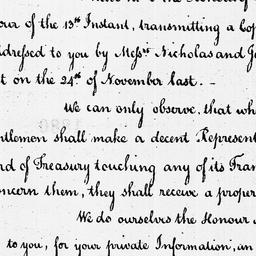 our of the 13th Instant, transmitting a
dressed to you by Messrs Nicholas and
t on the 24th of November last. -
We can only observe, that
tlemen shall make a decent
d of Treasury touching any of its
ncern them, they shall receive a proper
We do ourselves the Honour
to you, for your private Information, an